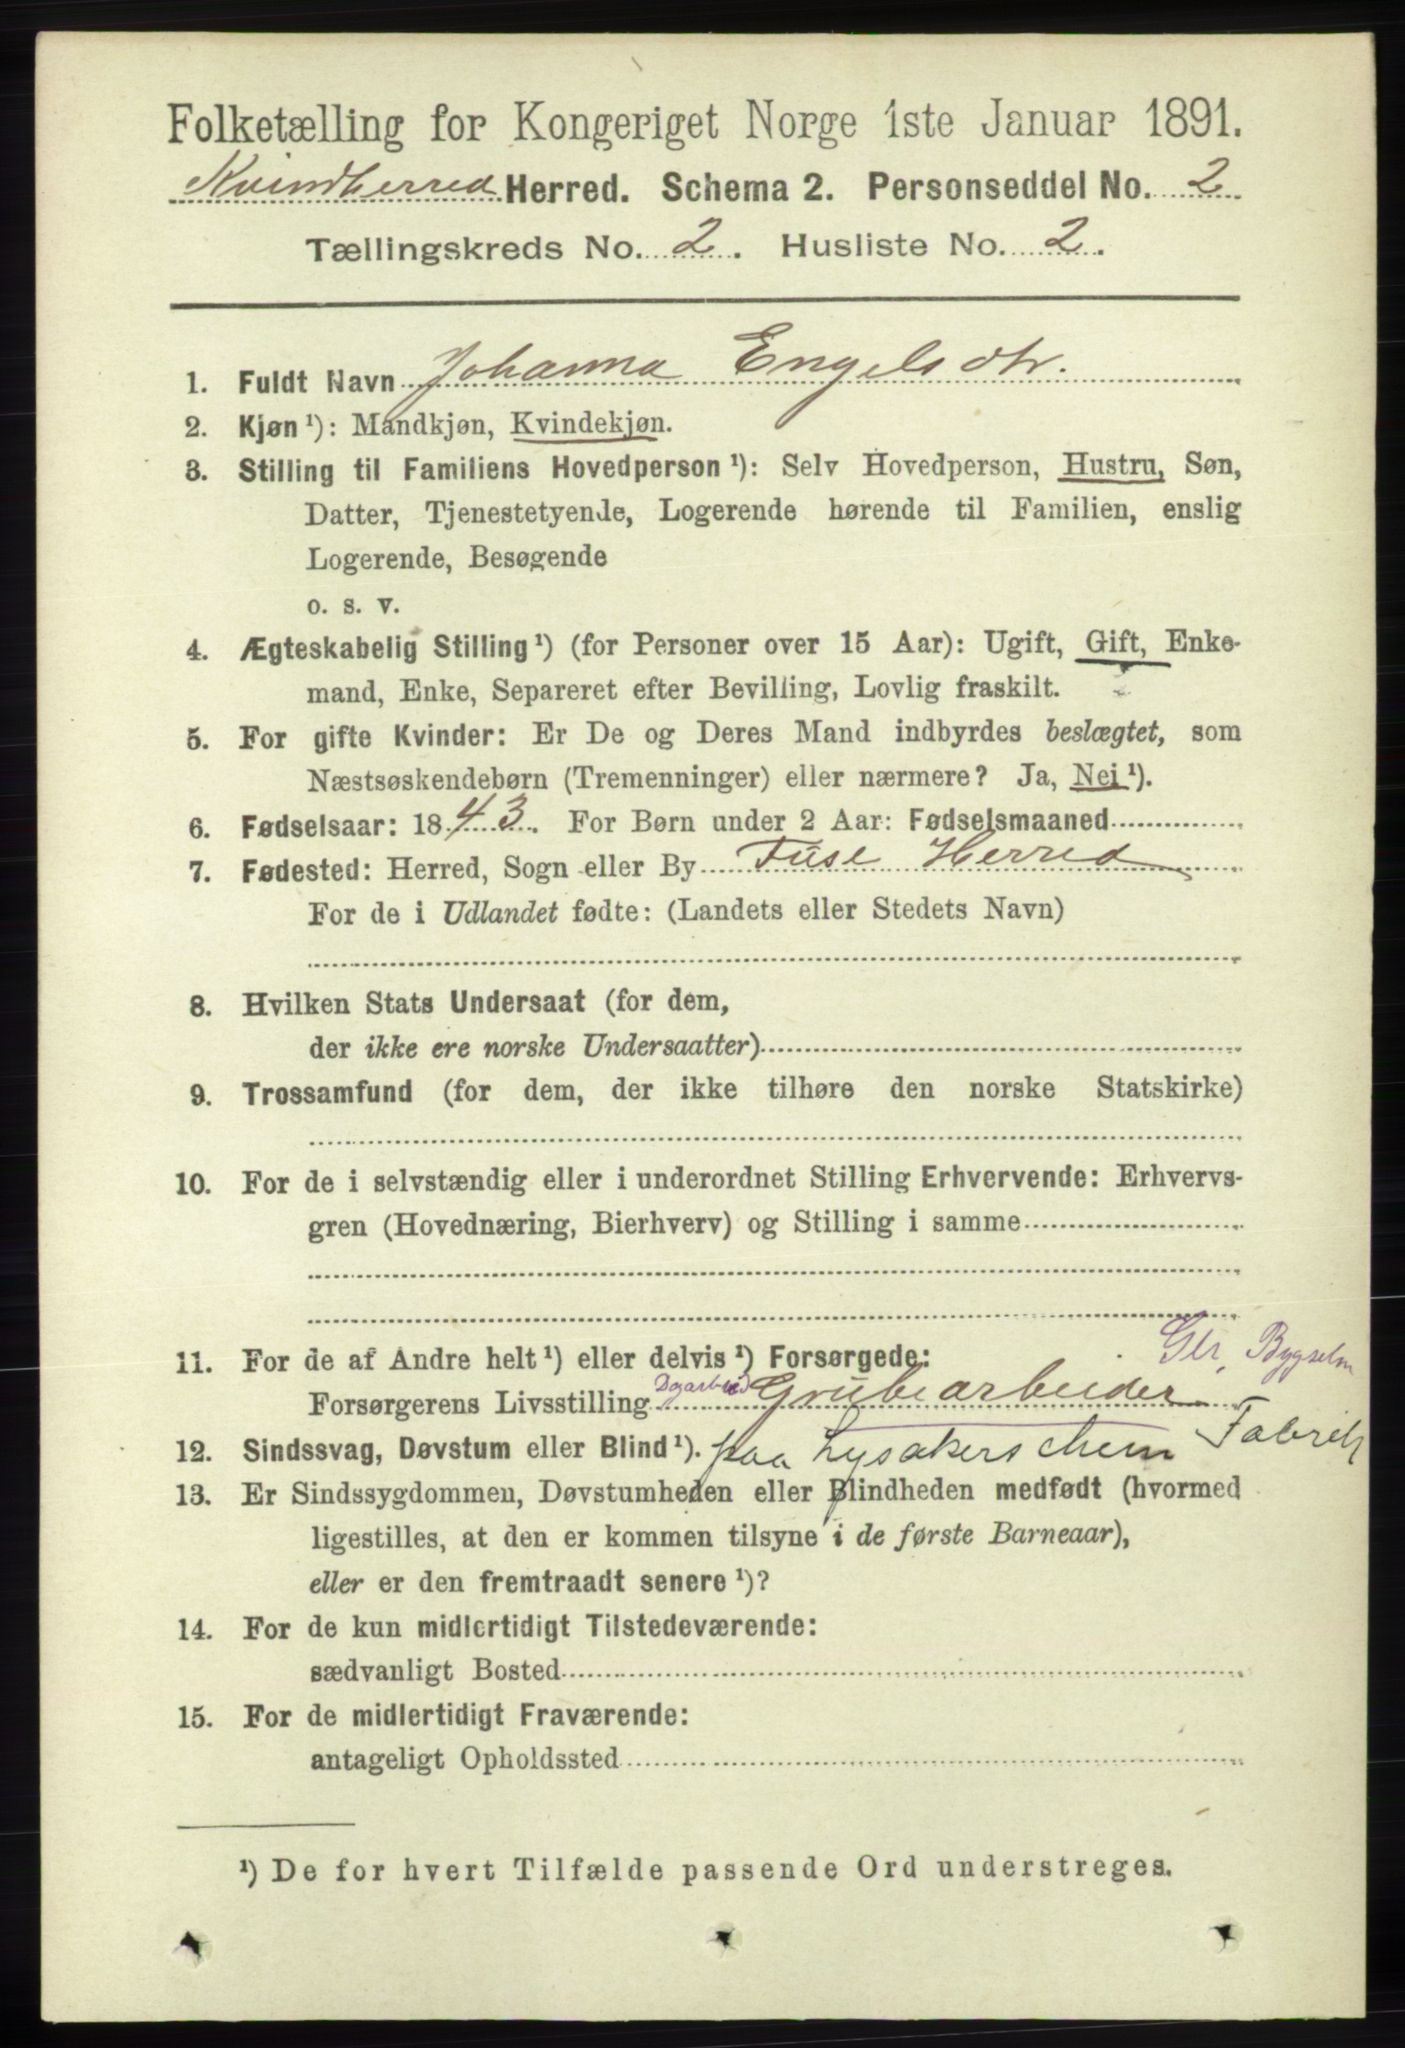 Folketælling for Kongeriget Norge 1ste Januar 1891.
Kvindherred Herred. Schema 2. Personseddel No. 2
Tællingskreds No. 2. Husliste No. 2.
1. Fuldt Navn Johanna Engelsdtr.
2. Kjøn¹): Mandkjøn, Kvindekjøn.
3. Stilling til Familiens Hovedperson¹): Selv Hovedperson, Hustru, Søn,
Datter, Tjenestetyende, Logerende hørende til Familien, enslig
Logerende, Besøgende
o. s. v.
4. Ægteskabelig Stilling¹) (for Personer over 15 Aar): Ugift, Gift, Enke-
mand, Enke, Separeret efter Bevilling, Lovlig fraskilt.
5. For gifte Kvinder: Er De og Deres Mand indbyrdes beslægtet, som
Næstsøskendebørn (Tremenninger) eller nærmere? Ja, Nei¹).
6. Fødselsaar: 1843. For Børn under 2 Aar: Fødselsmaaned
7. Fødested: Herred, Sogn eller By Fuse Herred
For de i Udlandet fødte: (Landets eller Stedets Navn)
8. Hvilken Stats Undersaat (for dem,
der ikke ere norske Undersaatter)
9. Trossamfund (for dem, der ikke tilhøre den norske Statskirke)
10. For de i selvstændig eller i underordnet Stilling Erhvervende: Erhvervs-
gren (Hovednæring, Bierhverv) og Stilling i samme
11. For de af Andre helt¹) eller delvis¹) Forsørgede:
Forsørgerens Livsstilling Grubearbeider
12. Sindssvag, Døvstum eller Blind¹). paa Lysakers chem Fabrik
13. Er Sindssygdommen, Døvstumheden eller Blindheden medfødt (hvormed
ligestilles, at den er kommen tilsyne i de første Barneaar),
eller er den fremtraadt senere¹)?
14. For de kun midlertidigt Tilstedeværende:
sædvanligt Bosted
15. For de midlertidigt Fraværende:
antageligt Opholdssted
¹) De for hvert Tilfælde passende Ord understreges.